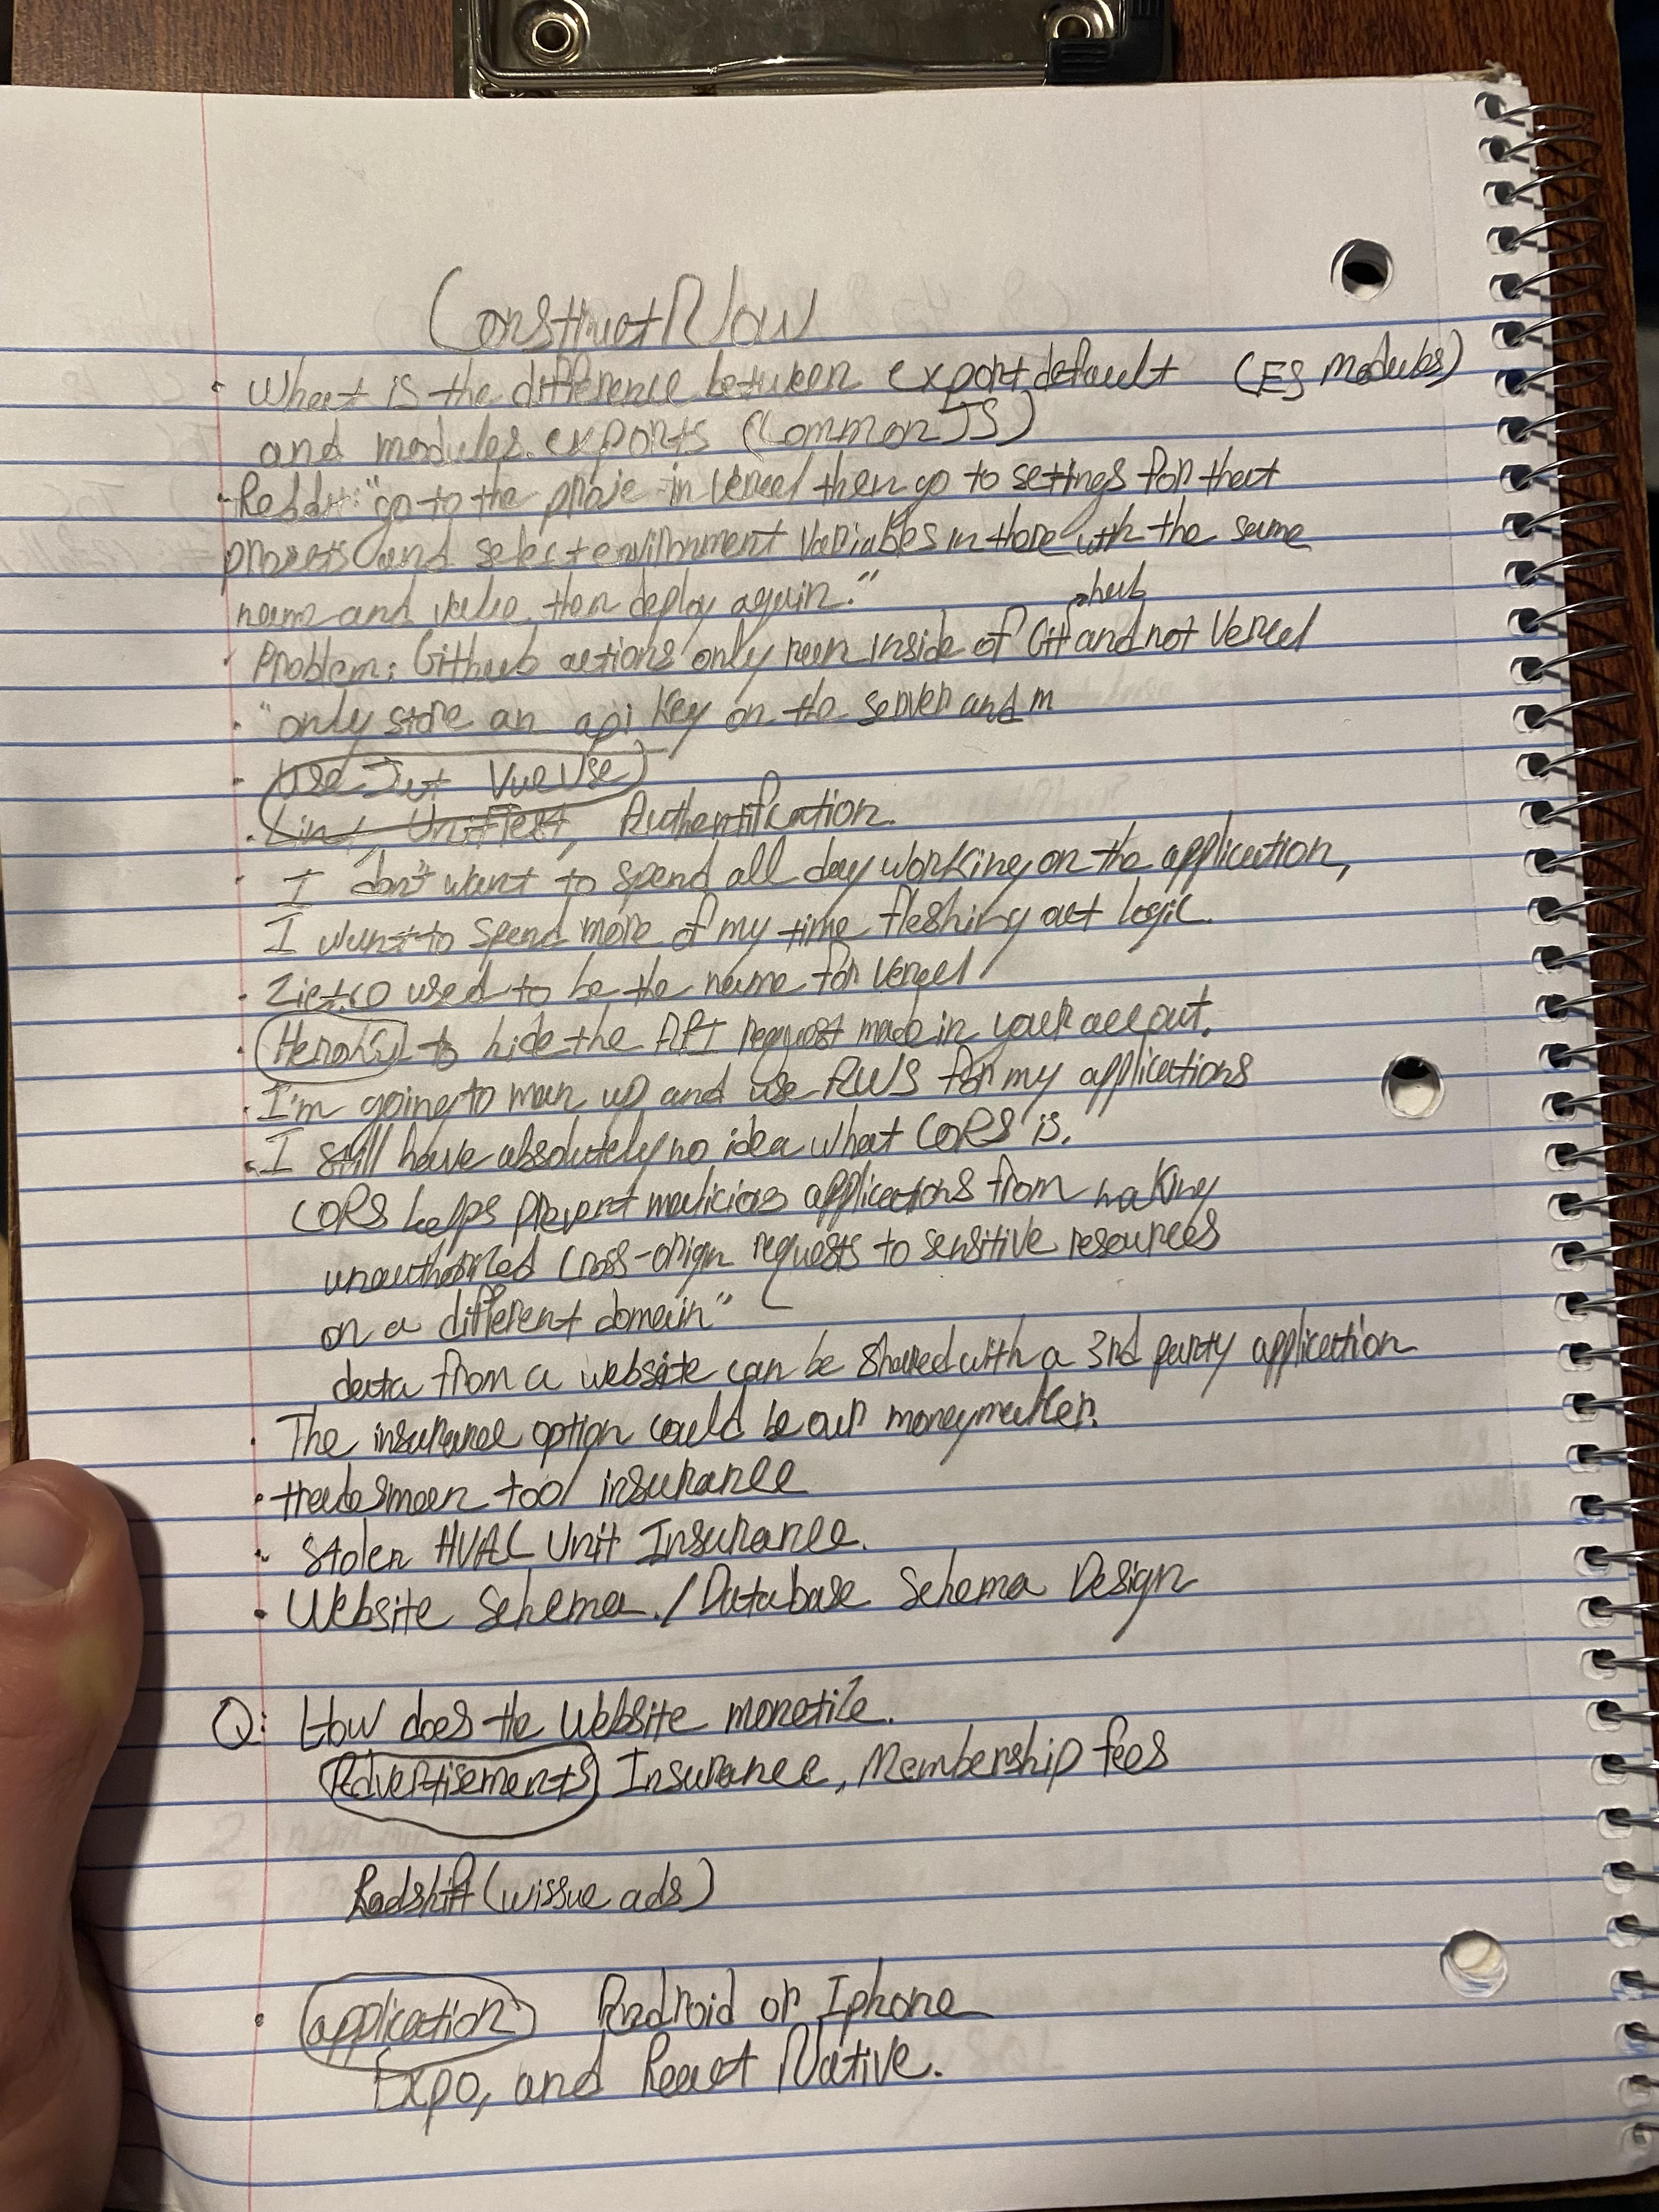 ConstructNow
· What is the difference between export default (ES modules)
and modules.exports (CommonJS)
· Reddit: "go to the proje in Vercel then go to settings for that
projects and select environment variables in there with the same
name and value, then deploy again."
· Problem: Github actions only run inside of Github and not Vercel
· "only store an api key on the server and m
· Use Just VueUse
· Lint, UnitTest, Authentification.
· I don't want to spend all day working on the application,
I want to spend more of my time fleshing out logic.
· Ziet.co used to be the name for Vercel
· Heroku to hide the API request made in your accout.
· I'm going to man up and use AWS for my applications
· I still have absolutely no idea what CORS is.
CORS helps prevent malicios applications from making
unauthorized cross-origin requests to sensitive resources
on a different domain"
data from a website can be shared with a 3rd party application
· The insurance option could be our moneymaker.
· tradesman tool insurance
· Stolen HVAC Unit Insurance.
· Website Schema. / Database Schema Design
Q: How does the Website monetize.
Advertisements Insurance, Membership fees
Redshift ( ads)
· application Android or Iphone
Expo, and React Native.